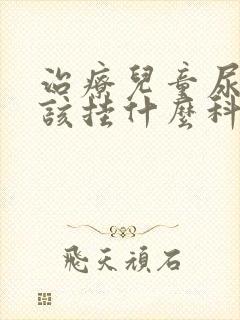 治療兒童尿
該挂什麼科
飛天頑石